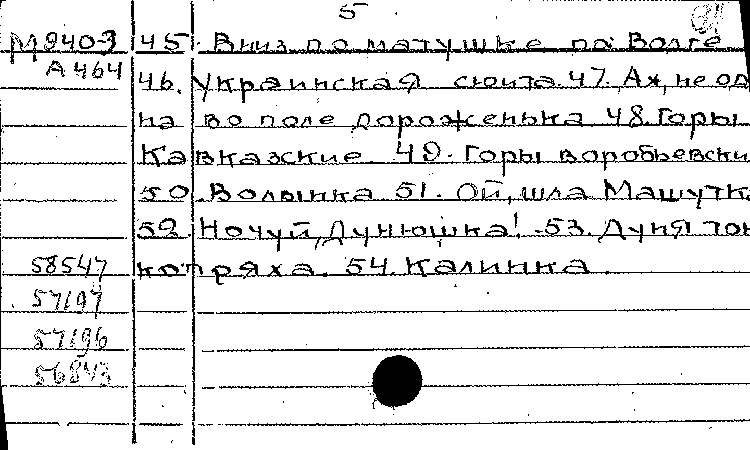 5
М940-3 45. Вниз по матушке по Волге
А464 46. Украинская сюита. 47. Ах, не од
на во поле дороженька 48. Горы
Кавказские 49. Горы воробьевски
50. Волынка 51. Ой, шла Машутка
52 Ночуй, Дунюшка! 53. Дуня тон
58547 копряха. 54. Калинка.
57197
57196
56843